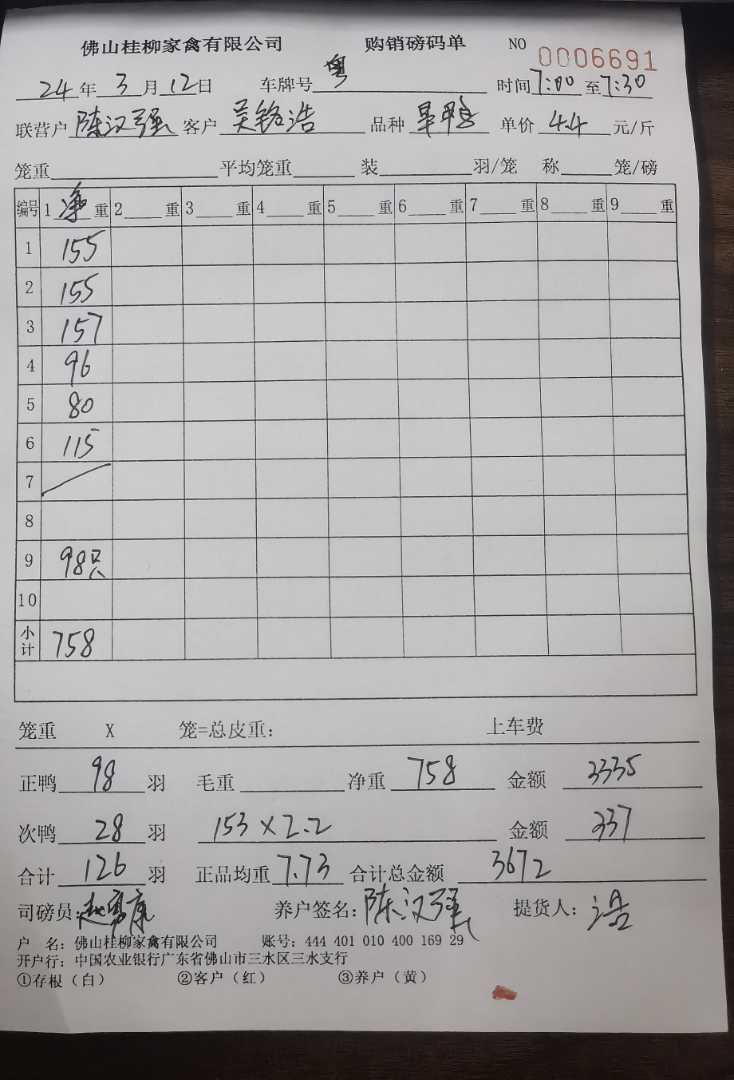 佛山桂柳家禽有限公司 购销磅码单 NO 0006691
24年3月12日 车牌号 粤 时间7:00至7:30
联营户 陈汉强 客户 吴铭浩 品种 旱鸭 单价 4.4 元/斤
笼重 平均笼重 装 羽/笼 称 笼/磅
编号 1 净 重 2 重 3 重 4 重 5 重 6 重 7 重 8 重 9 重
1 155
2 155
3 157
4 96
5 80
6 115
7
8
9 98只
10
小计 758
笼重 X 笼=总皮重: 上车费
正鸭 98 羽 毛重 净重 758 金额 3335
次鸭 28 羽 153×2.2 金额 337
合计 126 羽 正品均重 7.73 合计总金额 3672
司磅员: 养户签名: 陈汉强 提货人: 浩
户 名: 佛山桂柳家禽有限公司 账号: 444 401 010 400 169 29
开户行: 中国农业银行广东省佛山市三水区三水支行
①存根（白） ②客户（红） ③养户（黄）